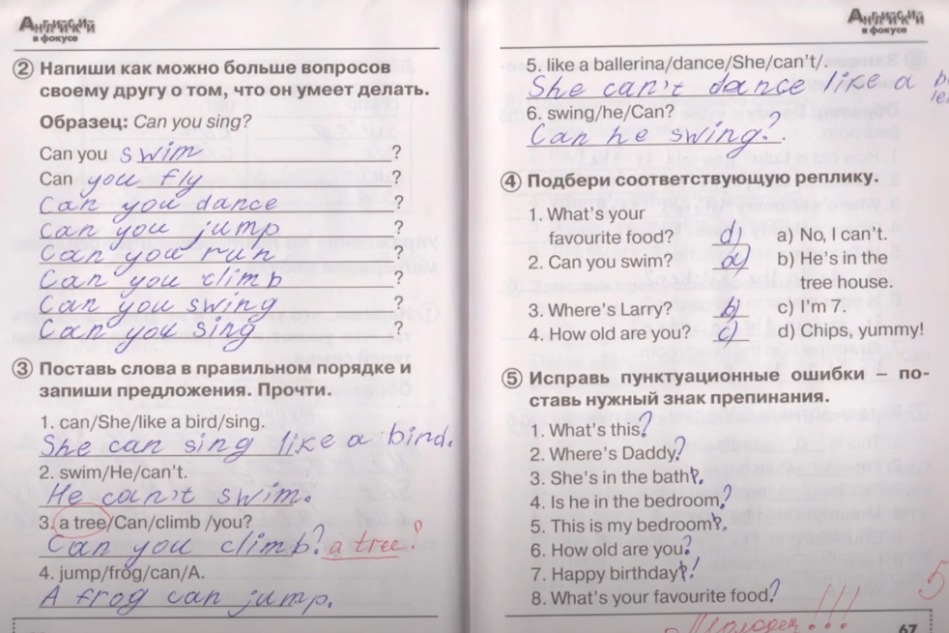 Английский
в фокусе
② Напиши как можно больше вопросов
своему другу о том, что он умеет делать.
Образец: Can you sing?
Can you swim?
Can you fly?
Can you dance?
Can you jump?
Can you run?
Can you climb?
Can you swing?
Can you sing?
③ Поставь слова в правильном порядке и
запиши предложения. Прочти.
1. can/She/like a bird/sing.
She can sing like a bird.
2. swim/He/can't.
He can't swim.
3. a tree/Can/climb /you?
Can you climb? a tree?
4. jump/frog/can/A.
A frog can jump.
Английский
в фокусе
5. like a ballerina/dance/She/can't/.
She can't dance like a
6. swing/he/Can?
Can he swing?
④ Подбери соответствующую реплику.
1. What's your
favourite food? d) a) No, I can't.
2. Can you swim? a) b) He's in the
tree house.
3. Where's Larry? b) c) I'm 7.
4. How old are you? c) d) Chips, yummy!
⑤ Исправь пунктуационные ошибки – по-
ставь нужный знак препинания.
1. What's this?
2. Where's Daddy?
3. She's in the bath.
4. Is he in the bedroom?
5. This is my bedroom.
6. How old are you?
7. Happy birthday!
8. What's your favourite food?
5
Молодец!!!
67